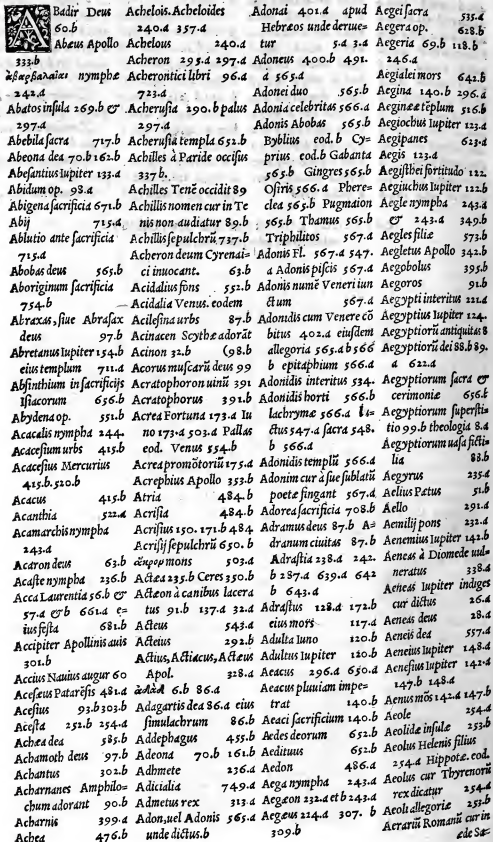 ABadir Deus
60.b
Abæus Apollo
333.b
nymphæ
242.a
Abatos insula 269.b &
297.a
Abebila sacra 717.b
Abeona dea 70.b 162.b
Abesantius Iupiter 133.a
Abidum op. 98.a
Abigena sacrificia 671.b
Abij 715.a
Ablutio ante sacrificia
715.a
Abobas deus 565.b
Aboriginum sacrificia
754.b
Abraxas, siue Abrasax
deus 97.b
Abretanus Iupiter 154.b
eius templum 711.a
Absinthium in sacrificijs
Isiacorum 656.b
Abydena op. 551.b
Acacalis nympha 244.
Acacesium urbs 415.b
Acacesius Mercurius
415.b.520.b
Acacus 415.b
Acanthia 522.a
Acamarchis nympha
243.a
Acaron deus 63.b
Acaste nympha 236.b
Acca Laurentia 56.b &
57.a & b 661.a e=
ius festa 681.b
Accipiter Apollinis auis
301.b
Accius Nauius augur 60
Aceseus Patarẽsis 481.a
Acesius 93.b 303.b
Acesta 252.b 254.a
Achæa dea 585.b
Achamoth deus 97.b
Achantus 302.b
Acharnanes Amphilo=
chum adorant 90.b
Acharnis 399.a
Achea 476.b
Achelois. Acheloides
240.a 357.a
Achelous 240.a
Acheron 295.a 297.a
Acherontici libri 96.a
723.a
Acherusia 290.b palus
297.a
Acherusia templa 652.b
Achilles à Paride occisus
337 b.
Achilles Tenẽ occidit 89
Achillis nomen cur in Te
nis non audiatur 89.b
Achillis sepulchrũ 737.b
Acheron deum Cyrenai=
ci inuocant. 63.b
Acidalius fons 552.b
Acidalia Venus. eodem
Acilesina urbs 87.b
Acinacen Scythæ adorãt
Acinon 32.b (98.b
Acorus muscarũ deus 99
Acratophoron uinũ 391
Acratophorus 391.b
Acrea Fortuna 173.a Iu
no 173.a 503.a Pallas
eod. Venus 554.b
Acrea promõtoriũ 175.a
Acrephius Apollo 353.b
Atria 484.b
Acrisia 484.b
Acrisius 150. 171.b 484
Acrisij sepulchrũ 650.b
mons 503.a
Actæa 235.b Ceres 350.b
Actæon à canibus lacera
tus 91.b 137.a 32.a
Acteus 543.a
Acteius 292.b
Actius, Actiacus, Actæus
Apol. 328.a
6.b 86.a
Adagartis dea 86.a eius
simulachrum 86.b
Addephagus 455.b
Adeona 70.b 161.b
Adhmete 236.a
Adicialia 749.a
Admetus rex 313.a
Adon, uel Adonis 565.a
unde dictus.b
Adonai 401.a apud
Hebræos unde deriue=
tur 5.a 3.a
Adoneus 400.b 491.
a 565.a
Adonei duo 565.b
Adonia celebritas 566.a
Adonis Abobas 565.b
Byblius eod.b Cy=
prius eod.b Gabanta
565.b Gingres 565.b
Osiris 566.a Phere=
clea 565.b Pugmaion
565.b Thamus 565.b
Triphilitos 567.a
Adonis Fl. 567.a 547.
a Adonis piscis 567.a
Adonis numẽ Veneri iun
ctum 567.a
Adonidis cum Venere cõ
cubitus 402.a eiusdem
allegoria 565.a b 566
b epitaphium 566.a
Adonidis interitus 534.
Adonidis horti 566.b
lachrymæ 566.a lu=
ctus 547.a sacra 548.
b 566.a
Adonidis templũ 566.a
Adonim cur à sue sublatũ
poetæ fingant 567.a
Adorea sacrificia 708.b
Adramus deus 87.b A=
dranum ciuitas 87.b
Adrastia 238.a 242.
b 287.a 639.a 642
b 643.a
Adrastus 128.a 172.b
eius mors 117.a
Adulta Iuno 120.b
Adultus Iupiter 120.b
Aeacus 296.a 650.a
Aeacus pluuiam impe=
trat 140.b
Aeaci sacrificium 140.b
Aedes deorum 652.b
Aedituus 652.b
Aedon 486.a
Aega nympha 243.a
Aegæon 232.a et b 243.a
Aegæus 224.a 307. b
309.b
Aegei sacra 535.a
Aegera op. 628.b
Aegeria 69.b 118.b
246.a
Aegialei mors 642.b
Aegina 140.b 296.a
Aegineæ tẽplum 516.b
Aegiochus Iupiter 123.a
Aegipanes 623.a
Aegis 123.a
Aegisthei fortitudo 122.
Aegiuchus Iupiter 122.b
Aegle nympha 243.a
& 243.a 349.b
Aegles filiæ 573.b
Aegletus Apollo 342.b
Aegobolus 395.b
Aegoros 91.b
Aegypti interitus 221.a
Aegyptius Iupiter 124.
Aegyptiorũ antiquitas 8
Aegyptiorũ dei 88.b 89.
a 622.a
Aegyptiorum sacra &
cerimoniæ 656.b
Aegyptiorum supersti=
tio 99.b theologia 8.a
Aegyptiorum uasa ficti=
lia 83.b
Aegyrus 235.a
Aelius Pætus 51.b
Aello 291.a
Aemilij pons 232.a
Aenemius Iupiter 142.b
Aeneas à Diomede uul=
neratus 338.a
Aeneas Iupiter indiges
cur dictus 26.a
Aeneas deus 28.a
Aeneis dea 557.a
Aeneius Iupiter 148.a
Aenesius Iupiter 142.a
147.b 148.a
Aenus mõs 142.a 147.b
Aeole 254.a
Aeolidæ insulæ 253.b
Aeolus Helenis filius
254.a Hippotæ. eod.
Aeolus cur Thyrenorũ
rex dicatur 254.a
Aeoli allegoriæ 253.b
Aerariũ Romanũ cur in
æde Sa=